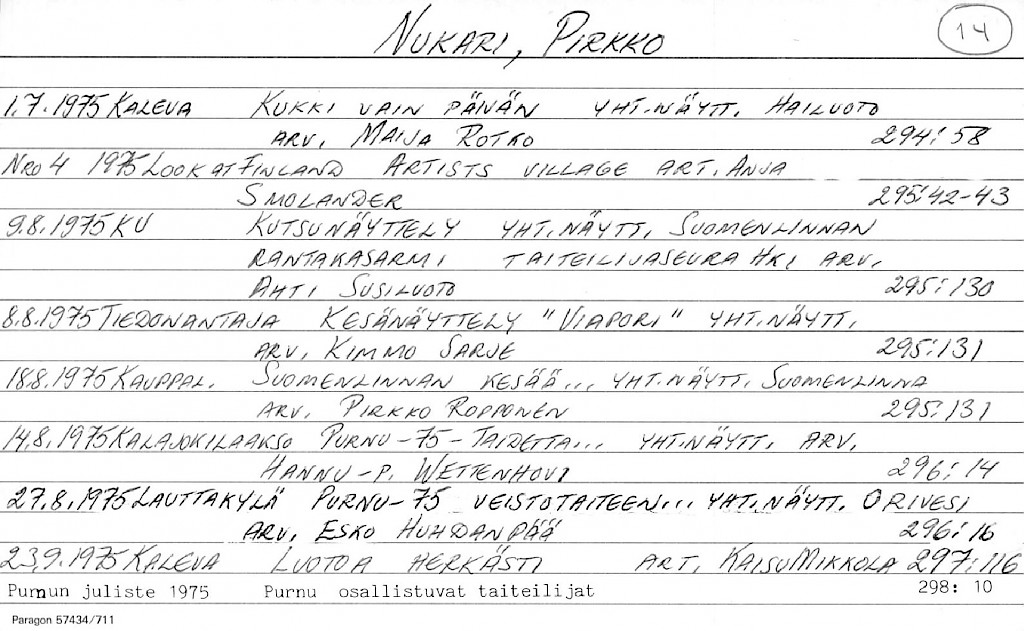 NUKARI, PIRKKO 14
1.7.1975 KALEVA KUKKI VAIN PÄIVÄN YHT.NÄYTT. HAILUOTO
ARV. MAIJA ROTKO 294:58
NRO 4 1975 LOOK AT FINLAND ARTISTS VILLAGE ART. ANJA
SMOLANDER 295:42-43
9.8.1975 KU KUTSUNÄYTTELY YHT.NÄYTT. SUOMENLINNAN
RANTAKASARMI TAITEILIJASEURA HKI ARV.
AHTI SUSILUOTO 295:130
8.8.1975 TIEDONANTAJA KESÄNÄYTTELY "VIAPORI" YHT.NÄYTT.
ARV. KIMMO SARJE 295:131
18.8.1975 KAUPPAL. SUOMENLINNAN KESÄÄ... YHT.NÄYTT. SUOMENLINNA
ARV. PIRKKO ROPPONEN 295:131
14.8.1975 KALAJOKILAAKSO PURNU-75-TAIDETTA... YHT.NÄYTT. ARV.
HANNU-P. WETTENHOVI 296:14
27.8.1975 LAUTTAKYLÄ PURNU-75 VEISTOTAITEEN... YHT.NÄYTT. ORIVESI
ARV. ESKO HUHDANPÄÄ 296:16
23.9.1975 KALEVA LUOTOA HERKÄSTI ART. KAISU MIKKOLA 297:116
Purnun juliste 1975 Purnu osallistuvat taiteilijat 298: 10
Paragon 57434/711